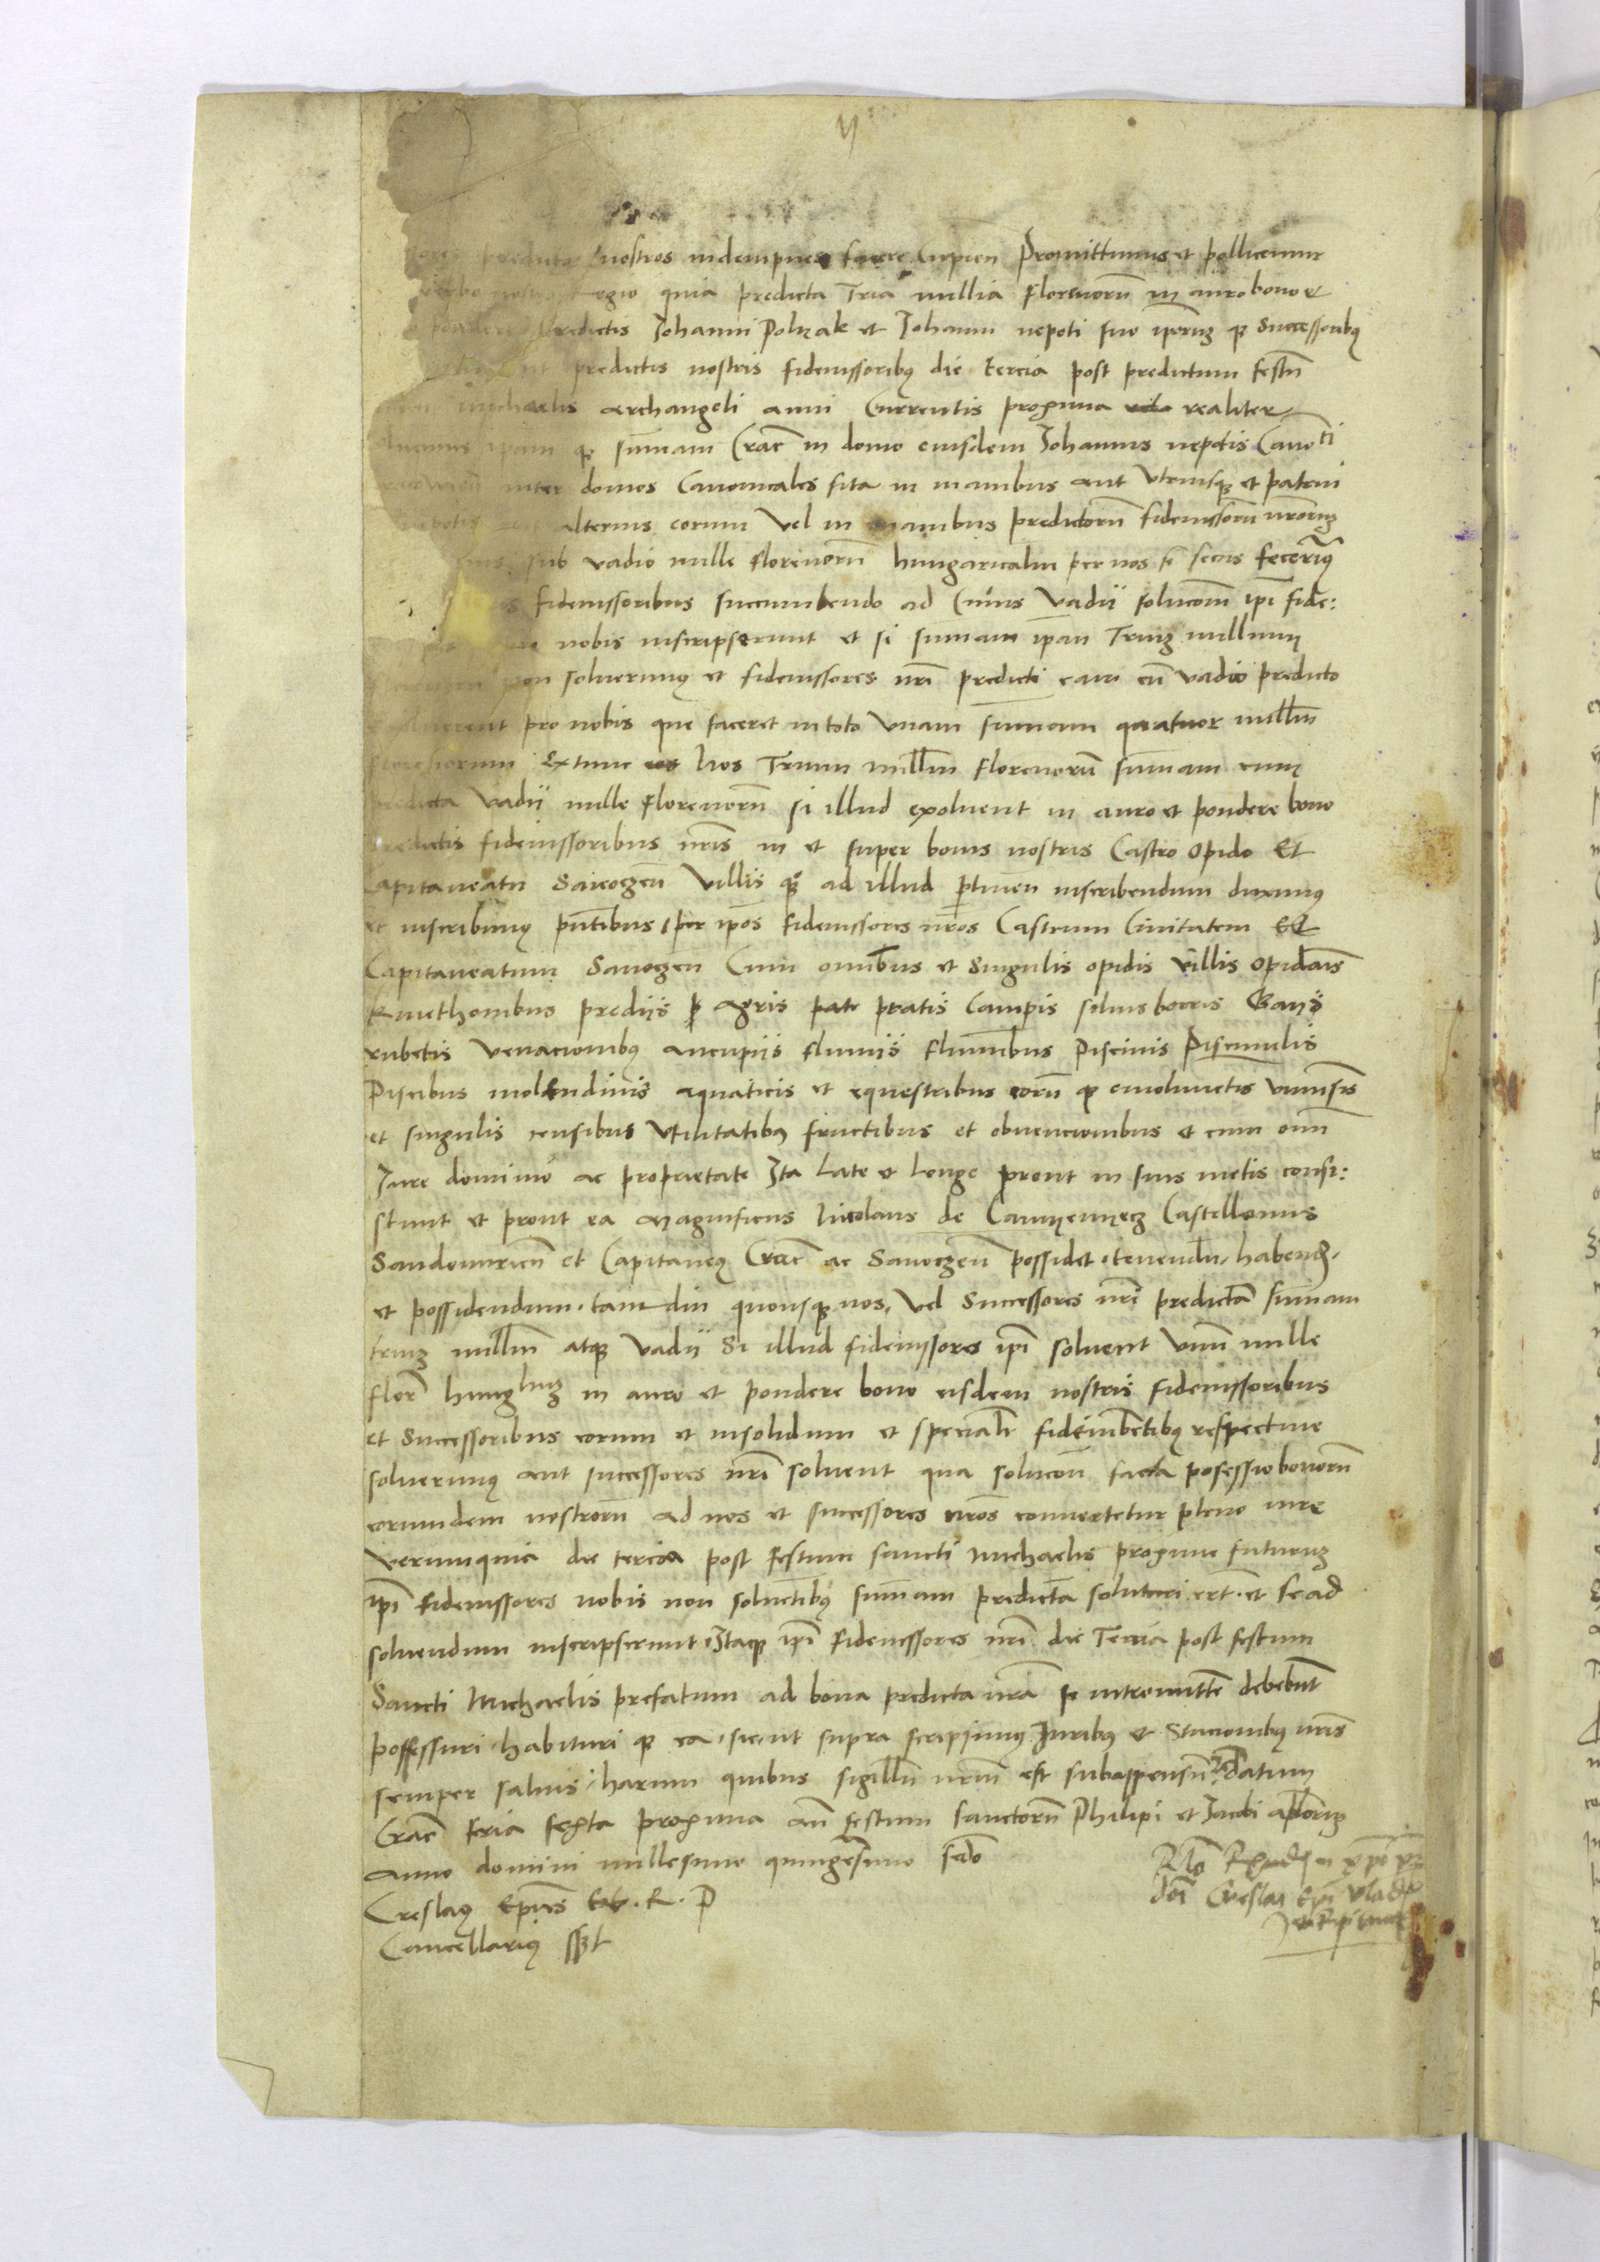 nostros indempnes facere Cupien Promittimus et pollicemur
nostro Regio quia predicta Tria millia florenorum in auro bono et
pondere predictis Johanni Polhak et Johanni nepoti suo ipsorumque Successoribus
aut predictis nostris fideiussoribus die tercia post predictum festum
michaelis archangeli anni Currentis proxima realiter
ipsamque summam Crac in domo eiusdem Johannis nepotis Canoci
inter domos Canonicales sita in manibus aut utriusque et patrui
aut alterius eorum vel in manibus predictorum fideiussorum nrorum
sub vadio mille florenorum hungaricaliu per nos si secus fecerimus
fideiussoribus succumbendo ad Cuius vadii solucom ipi fide:
nobis inscripserunt et si sumam ipam Trium millium
non soluerimus et fideiussores nri predicti eam cum vadio predicto
pro nobis que faceret in toto unam sumam quatuor millium
florenorum Extunc nos Trium millium florenorum sumam cum
predicta vadii mille florenorum si illud exoluent in auro et pondere bono
predictis fideiussoribus nris in et super bonis nostris Castro opido Et
Capitaneatu Sanoczen villis que ad illud ptinen inscribendum duximus
et inscribimus pntibus per ipos fideiussores nros Castrum Civitatem Et
Capitaneatum Sanoczen Cum omnibus et Singulis opidis villis opidanis
kmethonibus prediis agris pratis Campis siluis borris Gaiis
rubetis venacionibus aucupiis fluuiis fluminibus piscinis piscinulis
piscibus molendinis aquaticis et equestribus eorumque emolumentis uniuersis
et singulis censibus utilitatibus fructibus et obuencionibus et cum omni
Jure dominio ac proprietate Ita late et longe prout in suis metis consi:
stunt et prout ea magnificus Nicolaus de Camyenyecz Castellanus
Sandomirien et Capitaneus Crac ac Sanoczen possidet tenendum habend
et possidendum tamdiu quousque nos vel Successores nri predictam sumam
trium millium atque vadii Si illud fideiussores ipi soluent unum mille
flore hung in auro et pondere bono eisdem nostris fideiussoribus
et Successoribus eorum et insolidum et speciali fideiubentibus respectiue
soluerimus aut successores nri soluent qua solucom facta possessio bonorum
eorundem nostrorum ad nos et successores nros conuertetur pleno iure
verumquia die tercia post festum sancti Michaelis proxime futurum
ipi fideiussores nobis non soluentibus sumam predictam soluturi ert et se ad
soluendum inscripserunt Itaque ipi fideiussores nri die Tercia post festum
Sancti Michaelis prefatum ad bona predicta nra se intromittere debebunt
possessuri habiturique ea sicut supra scripsimus Juribus et Stacionibus nris
semper saluis harum quibus sigillum nrum est subappensum datum
Crac feria sexta proxima ante festum sanctorum Philipi et Jacobi aplorum
anno domini millesimo quingesimo scdo
Creslaus Epus R. P
Cancellarius sspt
Rlo
dni Creslai Epi vladis